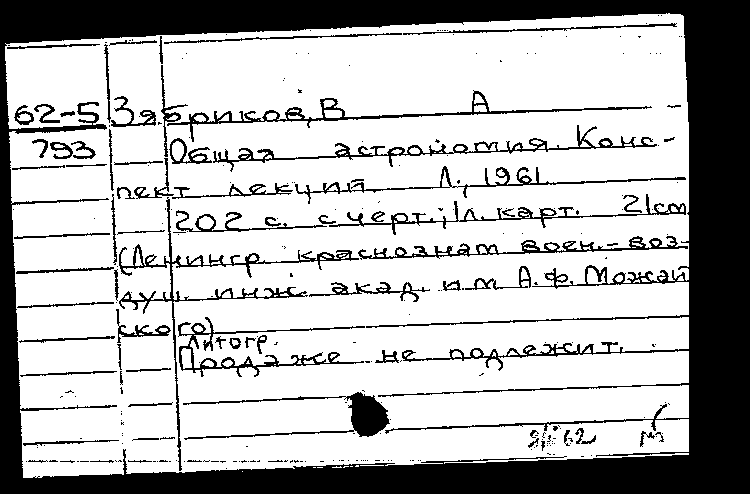 62-5 Зябриков, В А
793 Общая астрономия. Конс-
пект лекций. Л., 1961
202 с. с черт.; 1л. карт. 21см
(Ленингр краснознам воен.-воз-
душ. инж. акад. им А.Ф. Можай
ского)
Литогр.
Продаже не подлежит.
62